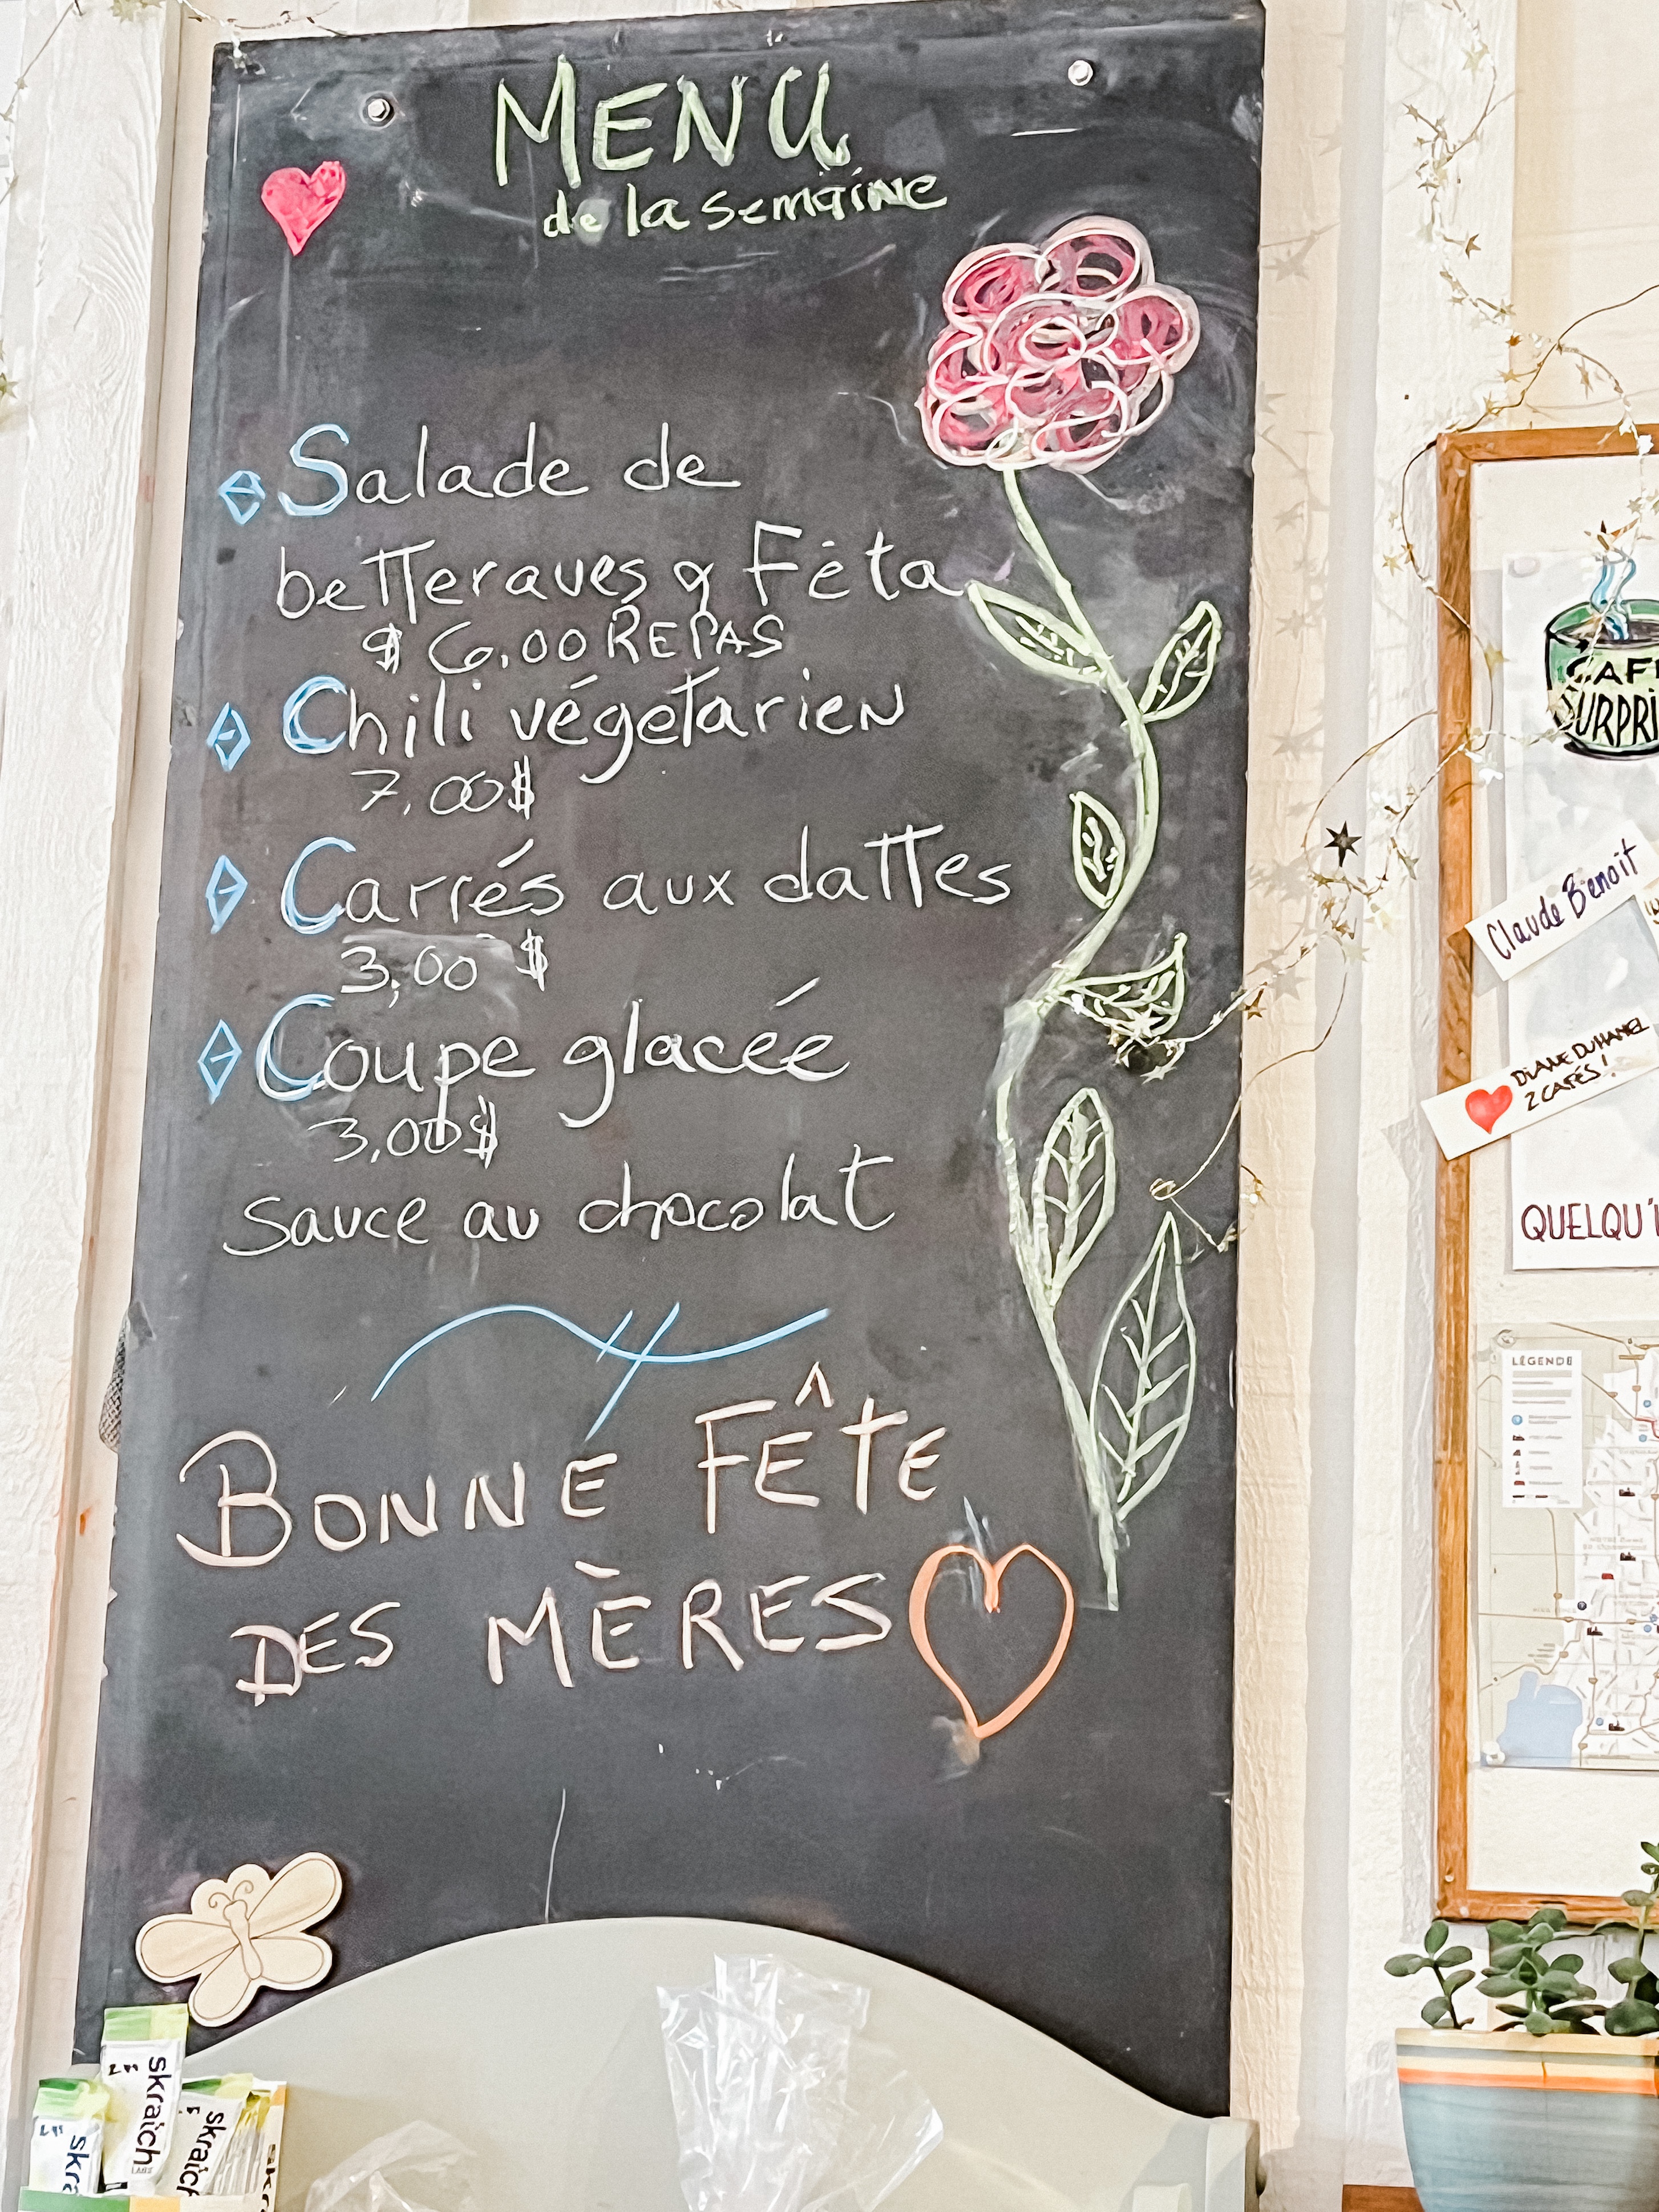 MENU
de la semaine
Salade de
betteraves & Féta
$ 6,00 REPAS
Chili végétarien
7,00$
Carrés aux dattes
3,00 $
Coupe glacée
3,00$
sauce au chocolat
BONNE FÊTE
DES MÈRES
CAF
SURPRI
Claude Benoit
DIANE DUHAMEL
2 CAFÉS!
QUELQU'
LÉGENDE
skraîch
LABS
skraîch
skra